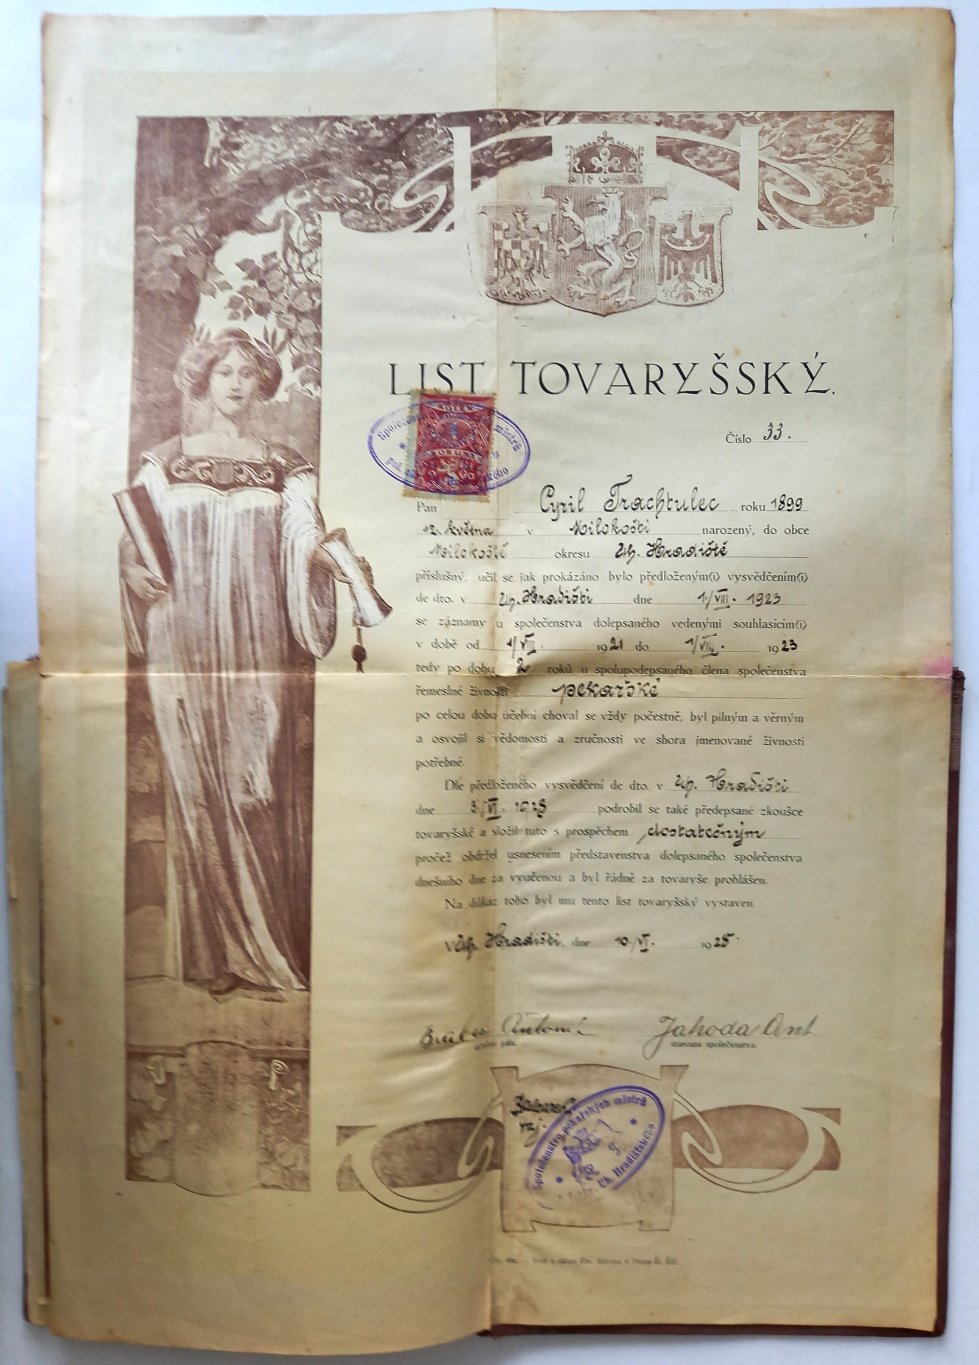 LIST TOVARYŠSKÝ.
Číslo 33.
Pan Cyril Trachtulec roku 1899
12. května v Milokošti narozený, do obce
Milokoště okresu Uh. Hradiště
příslušný, učil se jak prokázáno bylo předloženým(i) vysvědčením(i)
de dto. v Uh. Hradišti dne 1./VIII. 1923
se záznamy u společenstva dolepsaného vedenými souhlasícím(i)
v době od 1/VIII. 1921 do 1/VIII. 1923
tedy po dobu 2 roků u spolupodepsaného člena společenstva
řemeslné živnosti pekařské
po celou dobu učební choval se vždy počestně, byl pilným a věrným
a osvojil si vědomosti a zručnosti ve shora jmenované živnosti
potřebné.
Dle předloženého vysvědčení de dto. v Uh. Hradišti
dne 5./VI. podrobil se také předepsané zkoušce
tovaryšské a složil tuto s prospěchem dostatečným
pročež obdržel usnesením představenstva dolepsaného společenstva
dnešního dne za vyučenou a byl řádně za tovaryše prohlášen.
Na důkaz toho byl mu tento list tovaryšský vystaven.
V Uh. Hradišti, dne 10./VI. 1925.
Antonín Jahoda Ant
učební pán. starosta společenstva.
Společenstvo pekařských mistrů
Uh. Hradištského